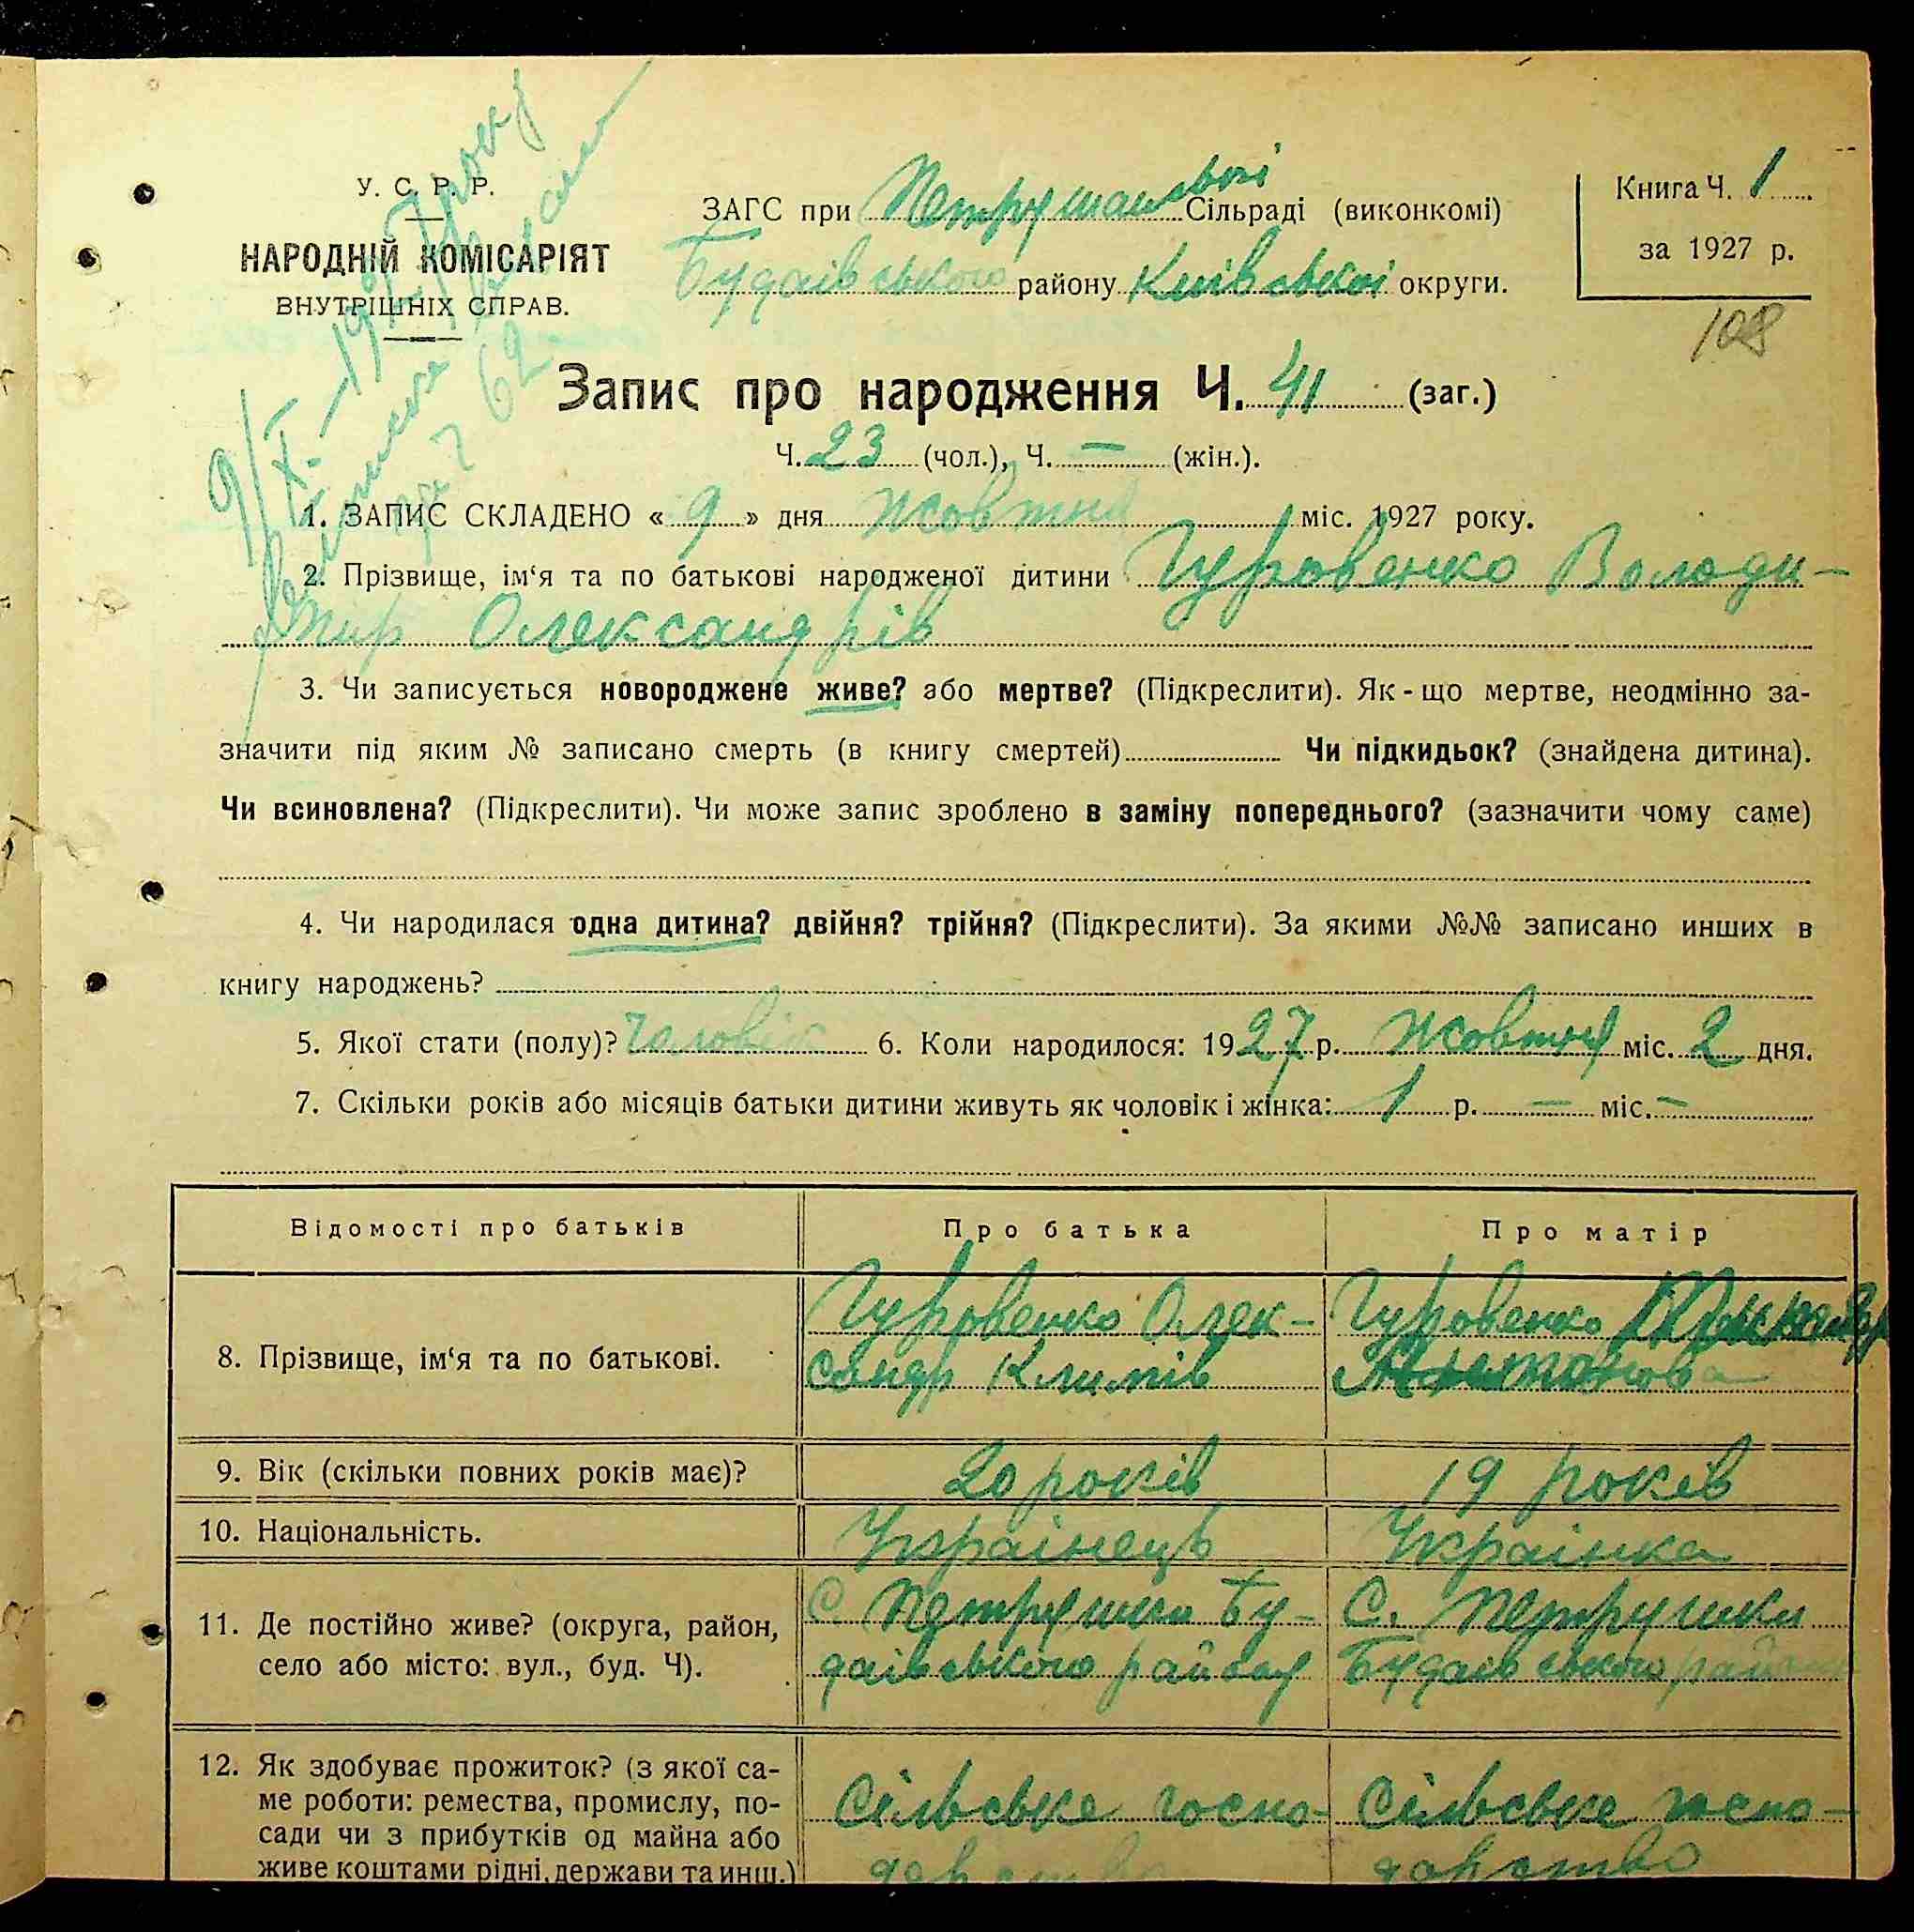 У. С. Р. Р.
НАРОДНІЙ КОМІСАРІЯТ
ВНУТРІШНІХ СПРАВ.
ЗАГС при Петрушанській Сільраді (виконкомі)
Будаівського району Киівськоі округи.
Книга Ч. 1
за 1927 р.
108
Запис про народження Ч. 41 (заг.)
Ч. 23 (чол.), Ч. — (жін.).
9/X.—192
62
1. ЗАПИС СКЛАДЕНО « 9 » дня Жовтня міс. 1927 року.
2. Прізвище, ім‘я та по батькові народженої дитини Гуровенко Володи-
мир Олександрів
3. Чи записується новороджене живе? або мертве? (Підкреслити). Як-що мертве, неодмінно за-
значити під яким № записано смерть (в книгу смертей) Чи підкидьок? (знайдена дитина).
Чи всиновлена? (Підкреслити). Чи може запис зроблено в заміну попереднього? (зазначити чому саме)
4. Чи народилася одна дитина? двійня? трійня? (Підкреслити). За якими №№ записано инших в
книгу народжень?
5. Якої стати (полу)? Чоловік 6. Коли народилося: 1927 р. Жовтня міс. 2 дня.
7. Скільки років або місяців батьки дитини живуть як чоловік і жінка: 1 р. — міс. —
Відомості про батьків Про батька Про матір
8. Прізвище, ім‘я та по батькові.
Гуровенко Олек-
сандр Климів
Гуровенко
9. Вік (скільки повних років має)? 20 років 19 років
10. Національність. Украінець Украінка
11. Де постійно живе? (округа, район,
село або місто: вул., буд. Ч).
С Петрушки Бу-
даівського району
С. Петрушки
Будаівського району
12. Як здобуває прожиток? (з якої са-
ме роботи: ремества, промислу, по-
сади чи з прибутків од майна або
живе коштами рідні, держави та инш.)
Сільське госпо-
дарство
Сільське госпо-
дарство